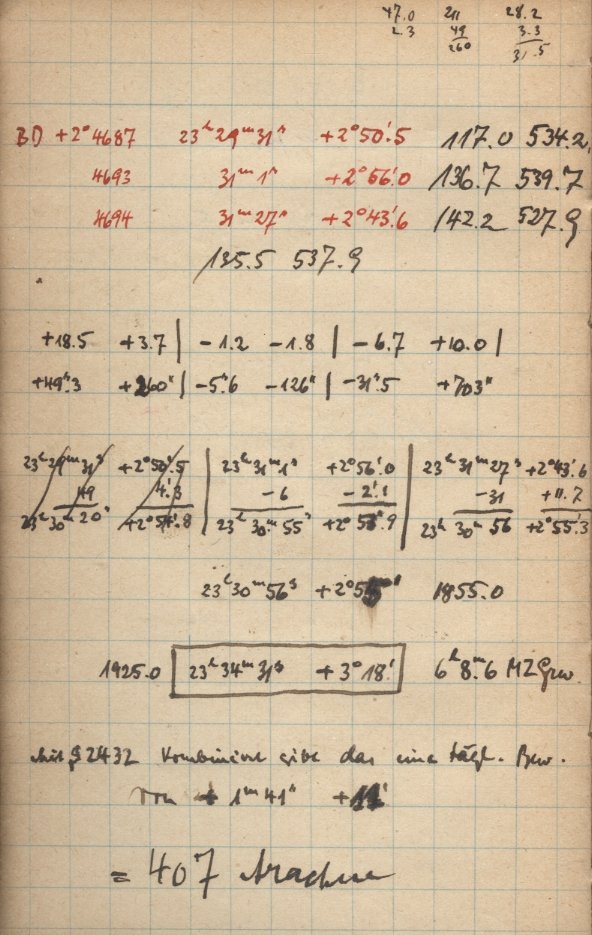 47.0 211 28.2
2.3 49 3.3
260 31.5
BD +2°4687 23ʰ29ᵐ31ˢ +2°50'.5 117.0 534.2
4693 31ᵐ1ˢ +2°56'.0 136.7 539.7
4694 31ᵐ27ˢ +2°43'.6 142.2 527.9
135.5 537.9
+18.5 +3.7 | -1.2 -1.8 | -6.7 +10.0 |
+49ˢ.3 +260" | -5ˢ.6 -126" | -31ˢ.5 +703"
23ʰ29ᵐ31ˢ +2°50'.5 | 23ʰ31ᵐ1ˢ +2°56'.0 | 23ʰ31ᵐ27ˢ +2°43'.6
49 4.3 | -6 -2'.1 | -31 +11.7
23ʰ30ᵐ20ˢ +2°54'.8 | 23ʰ30ᵐ55ˢ +2°53'.9 | 23ʰ30ᵐ56 +2°55'.3
23ʰ30ᵐ56ˢ +2°55' 1855.0
1925.0 23ʰ34ᵐ31ˢ +3°18' 6ʰ8ᵐ.6 MZGrw.
Mit 2432 kombiniert gibt das eine tägl. Bew.
von + 1ᵐ41ˢ +11'
= 407 Arachne